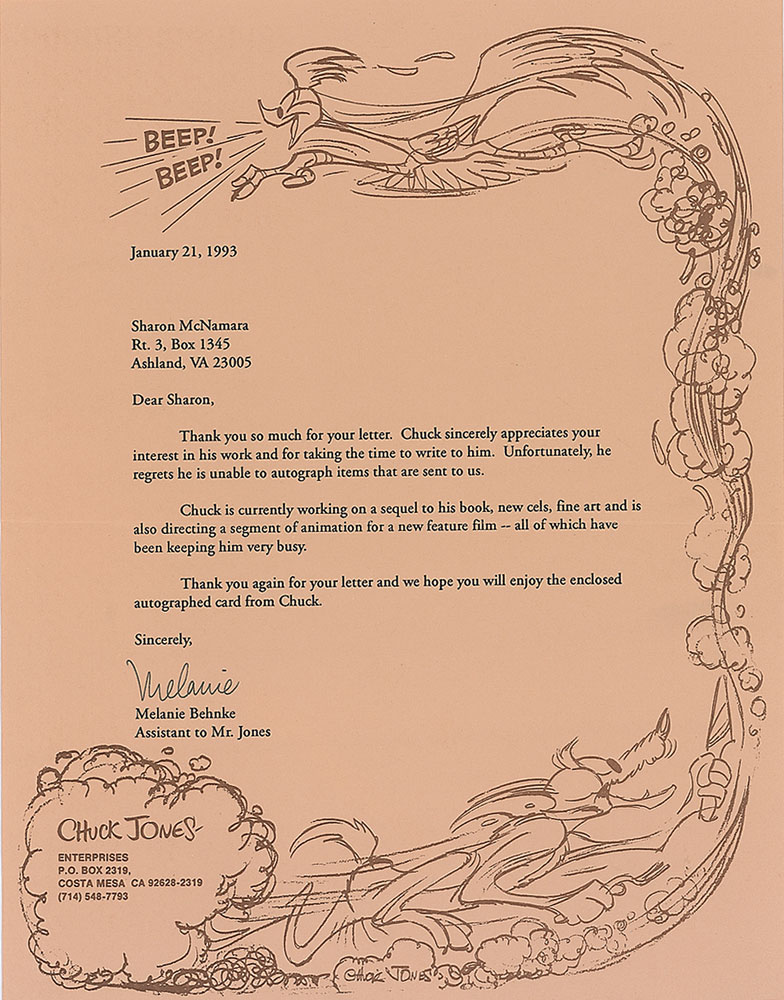 BEEP!
BEEP!
January 21, 1993
Sharon McNamara
Rt. 3, Box 1345
Ashland, VA 23005
Dear Sharon,
Thank you so much for your letter. Chuck sincerely appreciates your
interest in his work and for taking the time to write to him. Unfortunately, he
regrets he is unable to autograph items that are sent to us.
Chuck is currently working on a sequel to his book, new cels, fine art and is
also directing a segment of animation for a new feature film -- all of which have
been keeping him very busy.
Thank you again for your letter and we hope you will enjoy the enclosed
autographed card from Chuck.
Sincerely,
Melanie
Melanie Behnke
Assistant to Mr. Jones
CHUCK JONES
ENTERPRISES
P.O. BOX 2319,
COSTA MESA CA 92628-2319
(714) 548-7793
CHUCK JONES